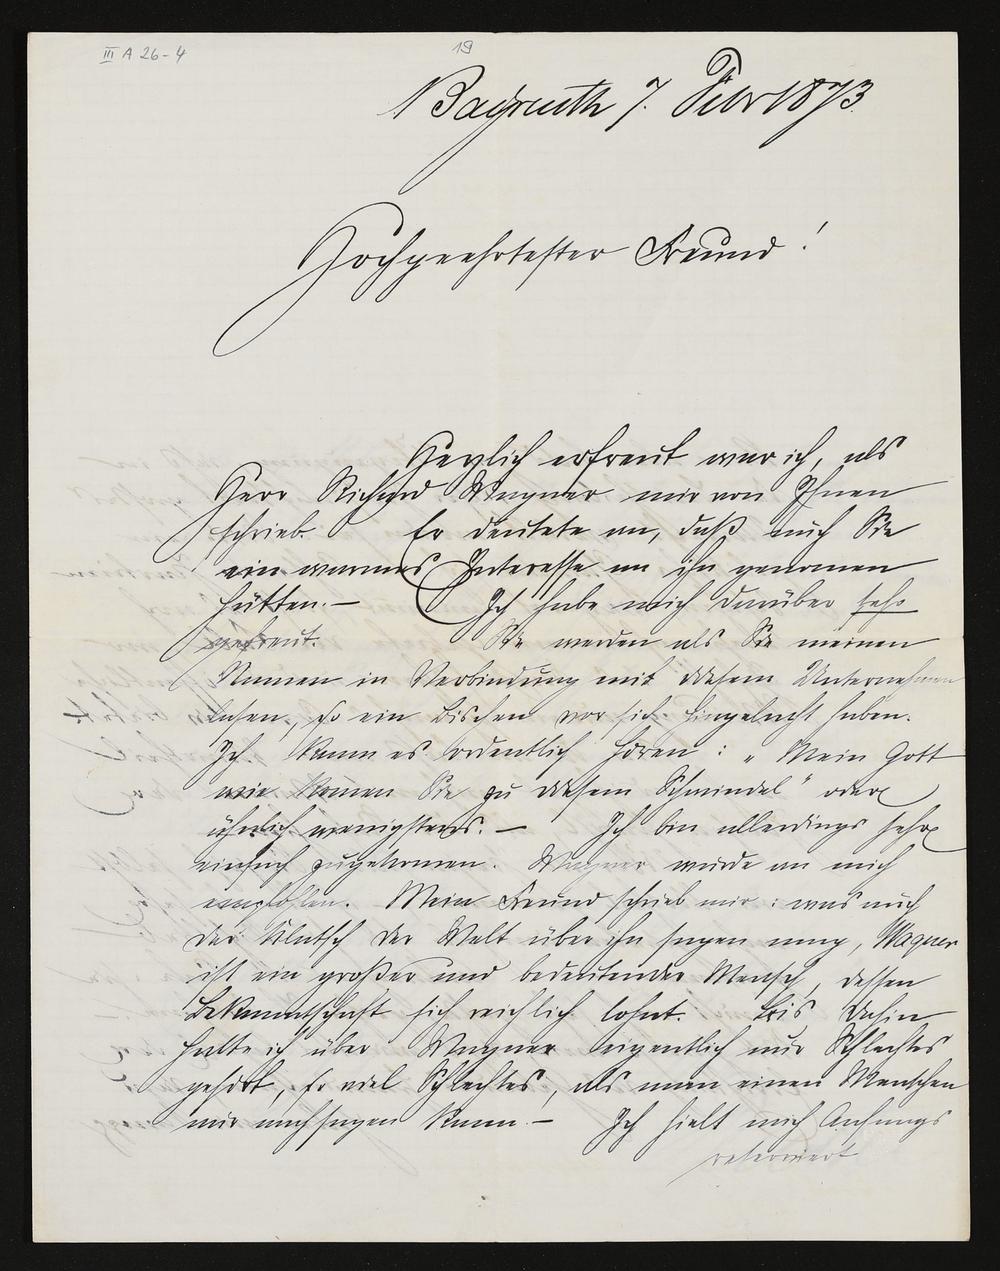 III A 26-4
19
Bayreuth 7. Febr 1873
Hochgeehrtester Freund!
Herzlich erfreut war ich, als
Herr Richard Wagner mir von Ihnen
schrieb. Er deutete an, daß auch Sie
ein warmes Interesse an ihn genomen
hätten. — Ich habe mich darüber sehr
gefreut. Sie werden als Sie meinen
Namen in Verbindung mit diesem Unternehmen
lasen, so ein Bischen vor sich hingelacht haben.
Ich kann es ordentlich hören: „Mein Gott
wie komen Sie zu diesem Schwindel" oder
ähnlich wenigstens. — Ich bin allerdings sehr
einfach zugekomen. Wagner wurde an mich
empfohlen. Mein Freund schrieb mir: was auch
der Klatsch der Welt über ihn sagen mag, Wagner
ist ein großer und bedeutender Mensch, dessen
Bekanntschaft sich reichlich lohnt. Bis dahin
hatte ich über Wagner eigentlich nur Schlechtes
gehört, so viel Schlechtes, als man einen Menschen
nur nachsagen kann. — Ich hielt mich Anfangs
reserviert